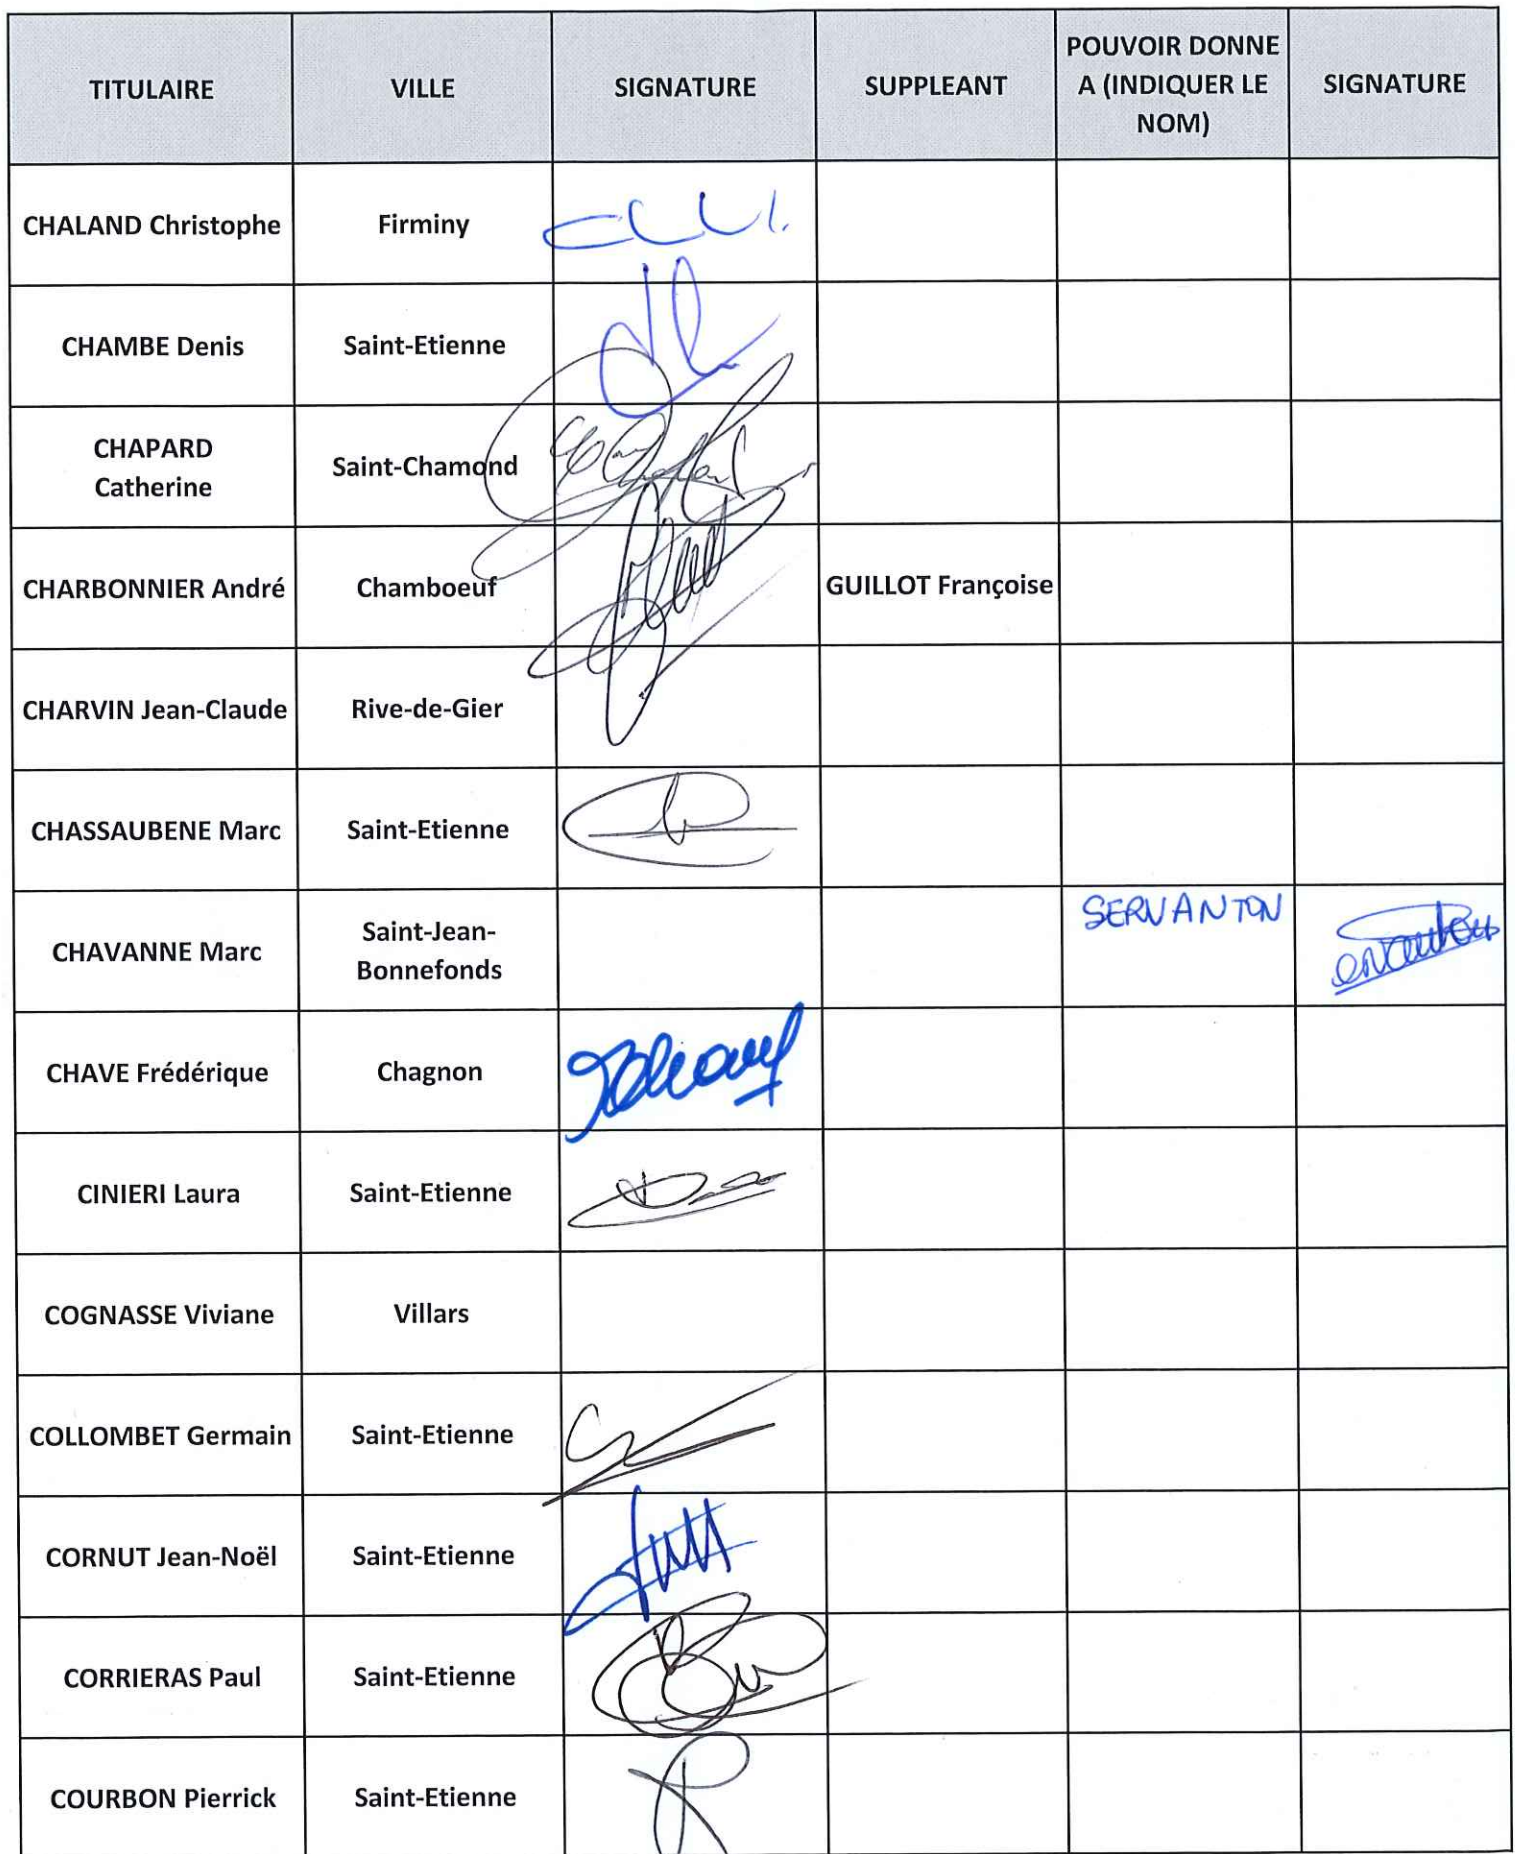 TITULAIRE
VILLE
SIGNATURE
SUPPLEANT
POUVOIR DONNE
A (INDIQUER LE
NOM)
SIGNATURE
CHALAND Christophe
Firminy
CHAMBE Denis
Saint-Etienne
CHAPARD
Catherine
Saint-Chamond
CHARBONNIER André
Chamboeuf
GUILLOT Françoise
CHARVIN Jean-Claude
Rive-de-Gier
CHASSAUBENE Marc
Saint-Etienne
CHAVANNE Marc
Saint-Jean-
Bonnefonds
SERVANTON
CHAVE Frédérique
Chagnon
CINIERI Laura
Saint-Etienne
COGNASSE Viviane
Villars
COLLOMBET Germain
Saint-Etienne
CORNUT Jean-Noël
Saint-Etienne
CORRIERAS Paul
Saint-Etienne
COURBON Pierrick
Saint-Etienne